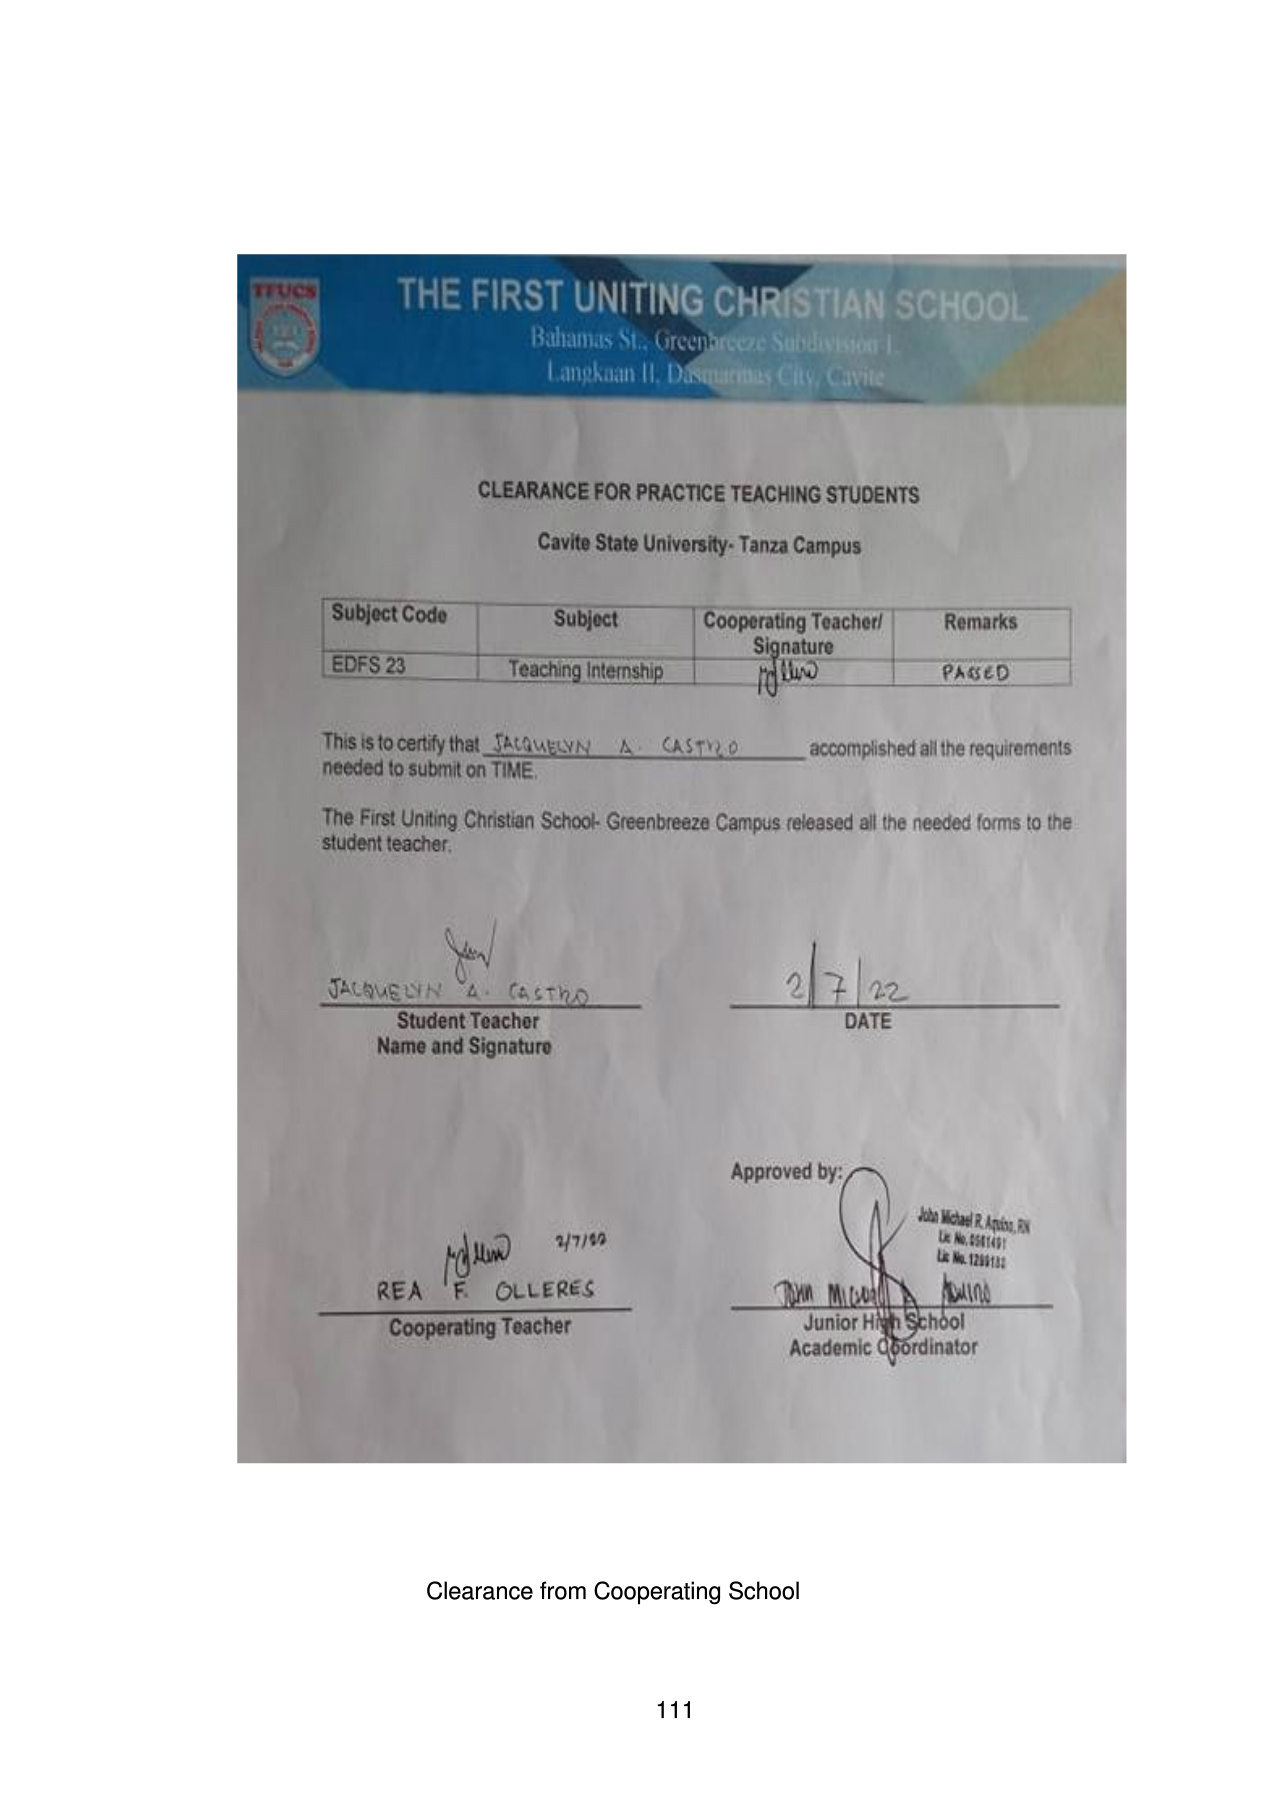 TFUCS
THE FIRST UNITING CHRISTIAN SCHOOL
Bahamas St., Greenbreeze Subdivision 1,
Langkaan II, Dasmarinas City, Cavite
CLEARANCE FOR PRACTICE TEACHING STUDENTS
Cavite State University- Tanza Campus
Subject Code Subject Cooperating Teacher/ Signature Remarks
EDFS 23 Teaching Internship PASSED
This is to certify that JACQUELYN A. CASTRO accomplished all the requirements
needed to submit on TIME.
The First Uniting Christian School- Greenbreeze Campus released all the needed forms to the
student teacher.
JACQUELYN A. CASTRO 2/7/22
Student Teacher DATE
Name and Signature
Approved by:
John Michael R. Aquino, RN
Lic No. 0561491
Lic No.
2/7/22
REA F. OLLERES JOHN MICHAEL AQUINO
Cooperating Teacher Junior High School
Academic Coordinator
Clearance from Cooperating School
111